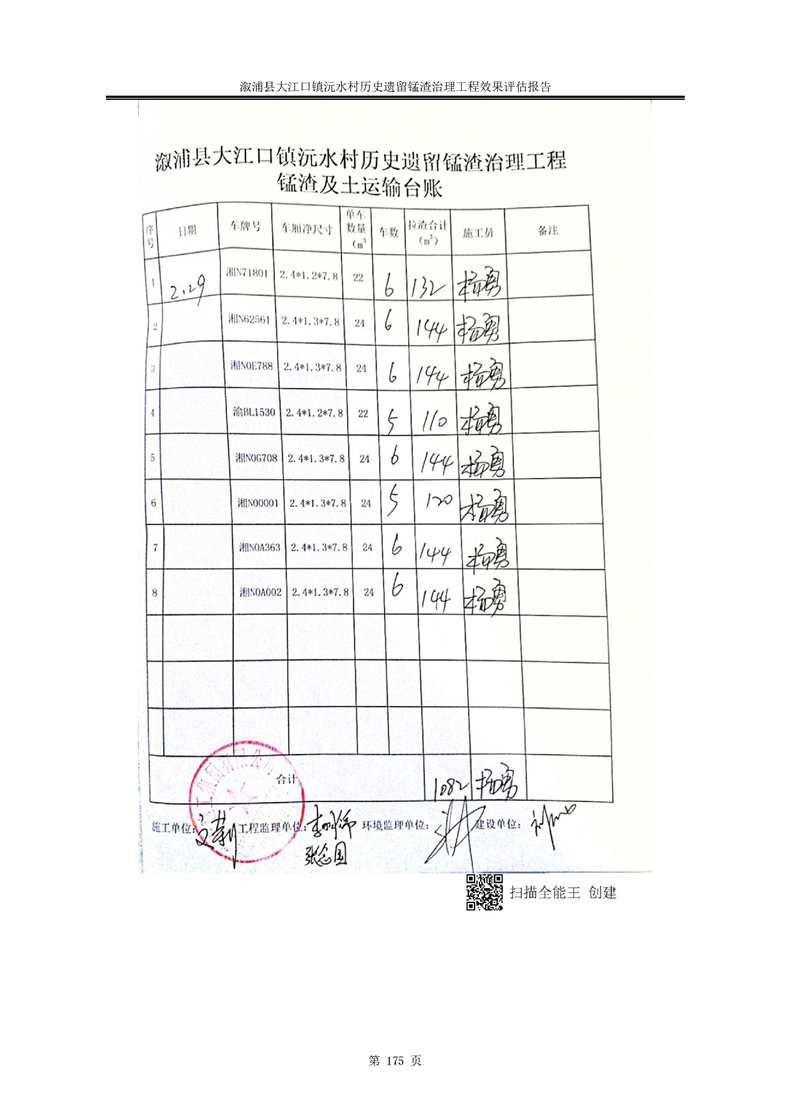 溆浦县大江口镇沅水村历史遗留锰渣治理工程效果评估报告
溆浦县大江口镇沅水村历史遗留锰渣治理工程
锰渣及土运输台账
序号 日期 车牌号 车厢净尺寸 单车数量(m³ 车数 拉渣合计(m³) 施工员 备注
1 2.29 湘N71801 2.4*1.2*7.8 22 6 132 杨勇
2 湘N62561 2.4*1.3*7.8 24 6 144 杨勇
3 湘N0E788 2.4*1.3*7.8 24 6 144 杨勇
4 渝BL1530 2.4*1.2*7.8 22 5 110 杨勇
5 湘N0G708 2.4*1.3*7.8 24 6 144 杨勇
6 湘N00001 2.4*1.3*7.8 24 5 120 杨勇
7 湘N0A363 2.4*1.3*7.8 24 6 144 杨勇
8 湘N0A002 2.4*1.3*7.8 24 6 144 杨勇
合计 1082 杨勇
施工单位: 工程监理单位: 环境监理单位: 建设单位:
扫描全能王 创建
第 175 页